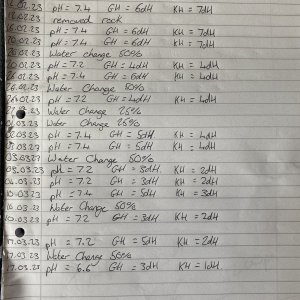 .02.23 pH = 7.4 GH = 6dH KH = 7dH
.02.23 removed rock
.02.23 pH = 7.4 GH = 6dH KH = 7dH
.02.23 pH = 7.4 GH = 6dH KH = 7dH
.02.23 Water change 50%
.02.23 pH = 7.2 GH = 4dH KH = 4dH
.02.23 pH = 7.4 GH = 6dH KH = 4dH
26.02.23 Water Change 50%
.02.23 pH = 7.2 GH = 4dH KH = 4dH
.23 Water Change 25%
.03.23 Water Change 25%
.03.23 pH = 7.4 GH = 5dH KH = 4dH
.03.23 pH = 7.4 GH = 5dH KH = 4dH
.03.23 Water Change 50%
.03.23 pH = 7.2 GH = dH KH = 2dH
.03.23 pH = 7.2 GH = 3dH KH = 2dH
.03.23 pH = 7.4 GH = 5dH KH = 3dH
.03.23 Water Change 50%
.03.23 pH = 7.2 GH = 3dH KH = 2dH
.03.23 pH = 7.2 GH = 5dH KH = 2dH
.03.23 Water Change 50%
.03.23 pH = 6.6 GH = 3dH KH = 1dH